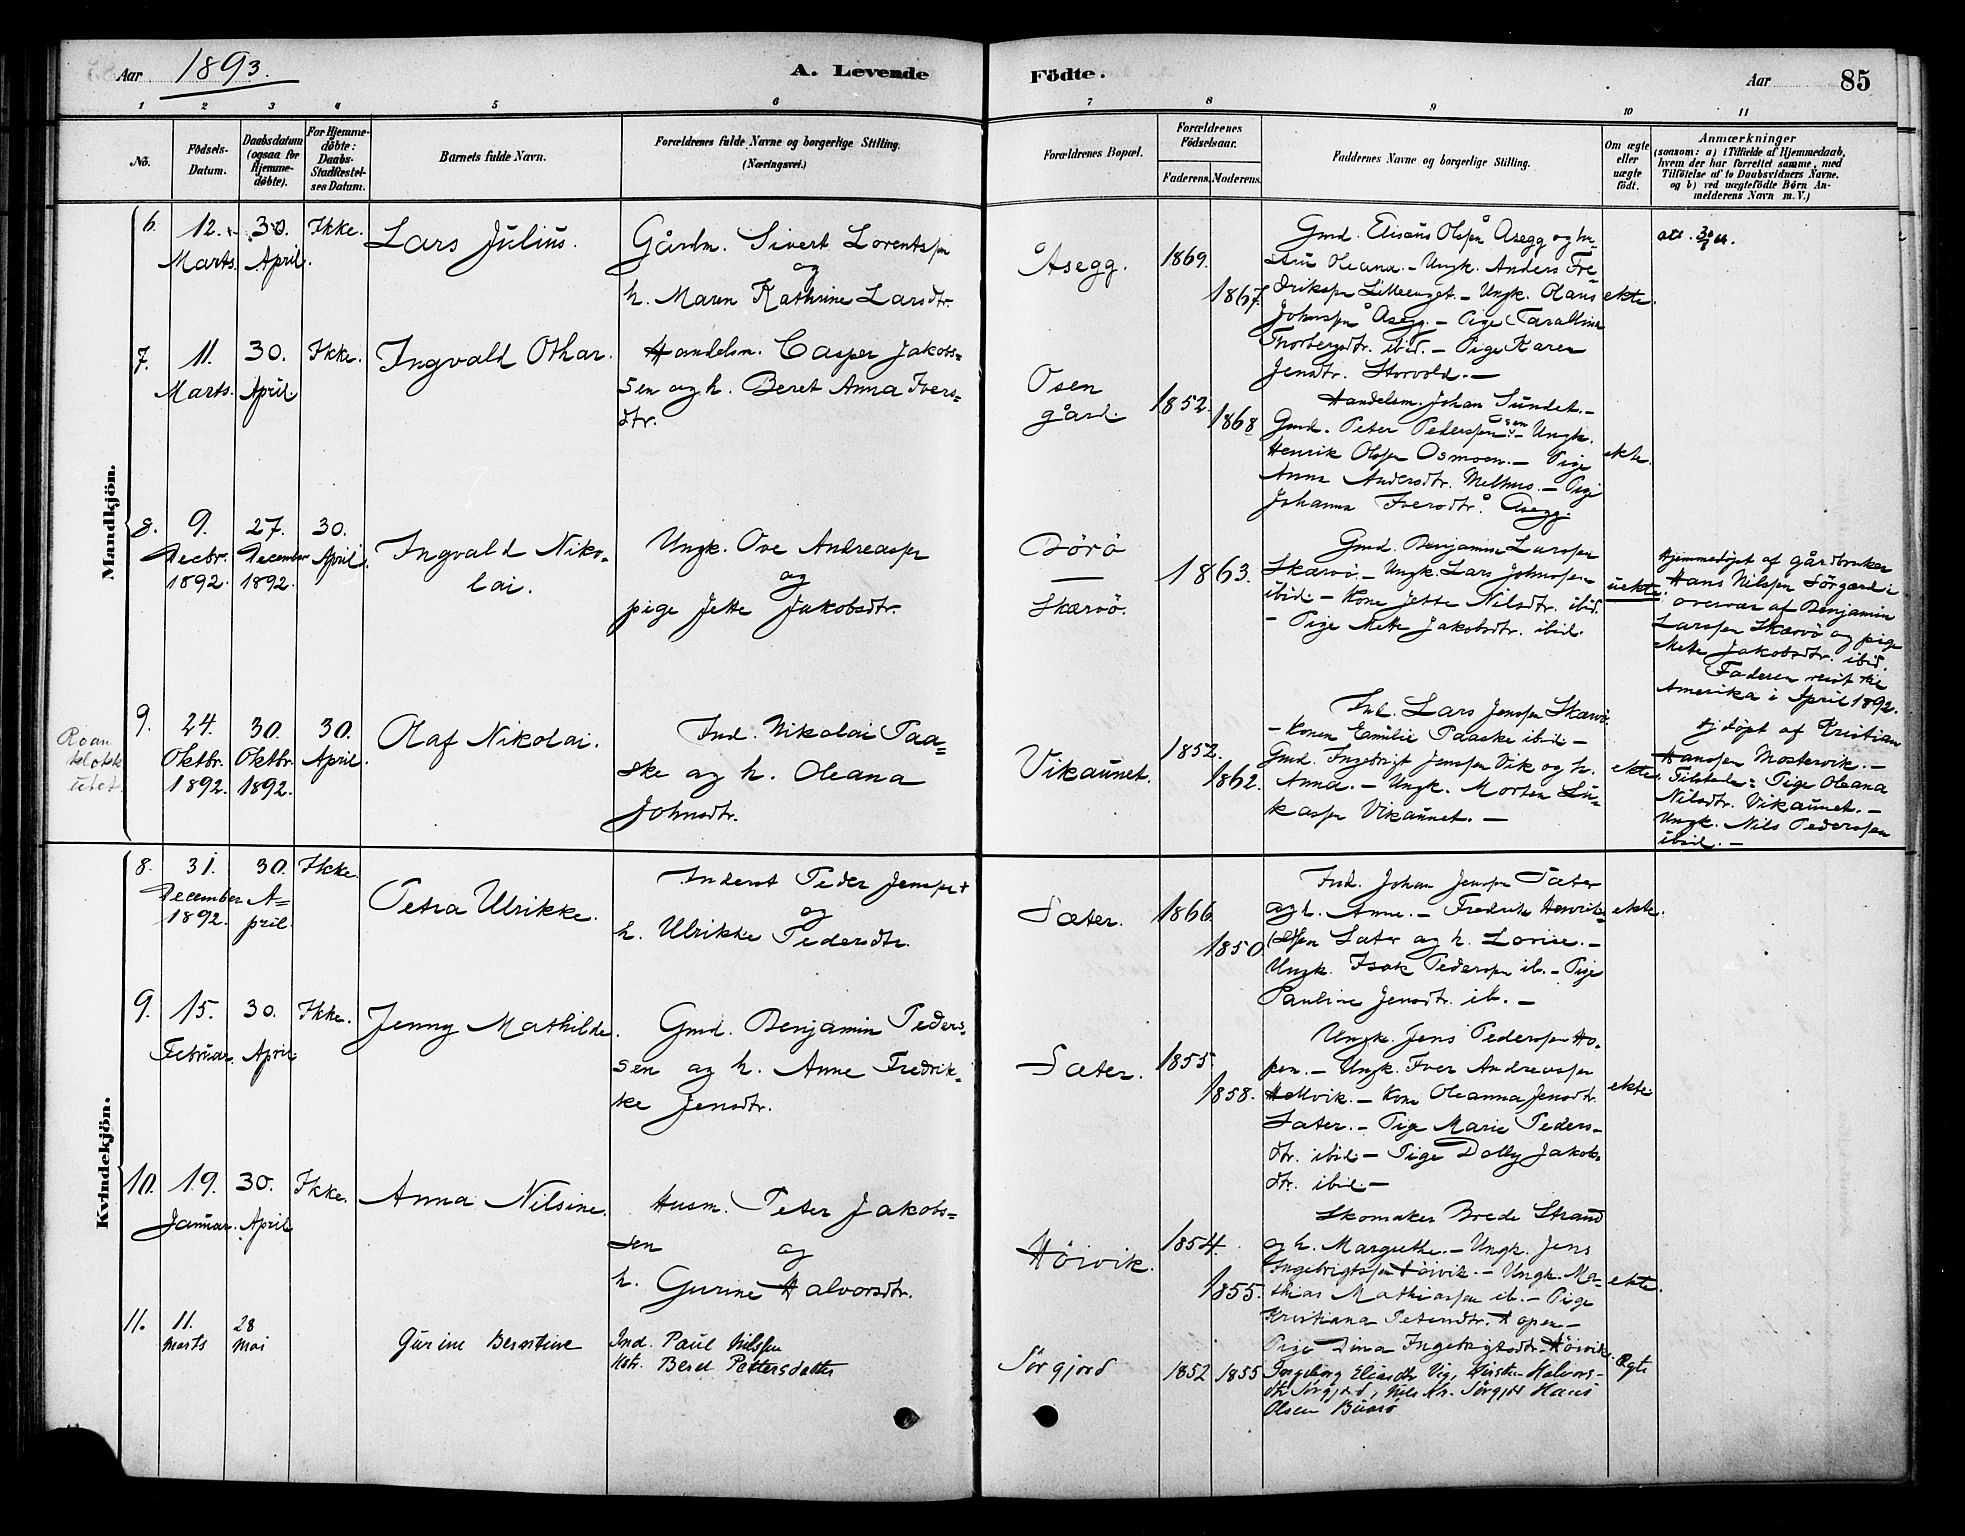 Aar 1893.
A. Levende
Födte.
Aar
85
1 2 3 4 5 6 7 8 9 10 11
No.
Födsels-
Datum.
Daabsdatum
(ogsaa for
Hjemme-
døbte).
For Hjemme-
döbte:
Daabs-
Stadfæstel-
ses Datum.
Barnets fulde Navn.
Forældrenes fulde Navne og borgerlige Stilling.
(Næringsvei.)
Forældrenes Bopæl.
Forældrenes
Födselsaar.
Faderens. Moderens.
Faddernes Navne og borgerlige Stilling.
Om ægte
eller
uægte
födt.
Anmærkninger
(saasom: a) i Tilfælde af Hjemmedaab,
hvem der har forrettet samme, med
Tilföielse af to Daabsvidners Navne.
og b) ved uægtefödte Börn An-
melderens Navn m.V.)
Mandkjön.
6.
12.
Marts.
30.
April.
Ikke.
Lars Julius.
Gårdm. Sivert Lorentssen
og
h. Maren Kathrine Larsdtr.
Åsegg.
1869.
1867.
Gmd. Elisæus Olsen Åsegg og hu-
stru Oleana. - Ungk. Anders Fre-
driksen Lilleenget. - Ungk. Olaus
Johnsen Åsegg. - Pige
Thorbergsdtr. ibid. - Pige Karen
Jensdtr. Storvold. -
ekte.
7.
11.
Marts.
30.
April.
Ikke.
Ingvald Othar.
Handelsm. Casper Jakobs=
sen og h. Beret Anna Ivers=
dtr.
Osen
gård.
1852.
1868
Handelsm. Johan Sundet. -
Gmd. Peter Pederssen Osen - Ungk.
Henrik Olsen Osmoen. - Pige
Anna Andersdtr. Melhus. - Pige
Johanna Iversdtr. Åsegg.
ekte.
8.
9.
Decbr.
1892.
27.
December
1892.
30.
April.
Ingvald Niko-
lai.
Ungk. Ove Andreassen
og
pige Jette Jakobsdtr.
Børø
—
Skærvö.
1863.
Gmd. Benjamin Larssen
Skærvö. - Ungk. Lars Johnssen
ibid. - Kone Jette Nilsdtr. ibid.
- Pige Mette Jakobsdtr. ibid.
uekte.
Hjemmedøpt af gårdbruker
Hans Nilssen Sörgård i
overvær af Benjamin
Larssen Skærvö og pige
Mette Jakobsdtr. ibid.
Faderen reist til
Amerika i April 1892.
Roan
9.
24.
Oktbr.
1892.
30.
Oktbr.
1892.
30.
April.
Olaf Nikolai.
Ind. Nikolai Paa=
ske og h. Oleana
Johnsdtr.
Vikaunet.
1852.
1862.
Ind. Lars Jenssen Skærvö
- Konen Emilie Paaske ibid -
Gmd. Ingebrigt Jenssen Vik og h.
Anna. - Ungk. Morten Lu-
kassen Vikaunet. -
ekte.
Hjdøpt af Kristian
Hanssen Mostervik. -
Tilstede: Pige Oleana
Nilsdtr. Vikaunet. -
Ungk. Nils Pederssen
ibid. -
Kvindekjön.
8.
31.
December
1892.
30.
A=
pril.
Ikke.
Petra Ulrikke.
Inderst Peder Jenssen
og
h. Ulrikke Pedersdtr.
Sæter.
1866
1850
Ind. Johan Jenssen Sæter
og h. Anne. - Fredrik Henrik=
sen Sæter og h. Lovise. -
Ungk. Isak Pedersen ib. - Pige
Pauline Jensdtr. ib. -
ekte.
9.
15.
Februar.
30.
April
Ikke.
Jenny Mathilde.
Gmd. Benjamin Peders=
sen og h. Anne Fredrik-
ke Jensdtr.
Sæter.
1855.
1858.
Ungk. Jens Pederssen Ho-
pen. - Ungk. Iver Andreassen
Hellvik. - Kone Oleanna Jensdtr.
Sæter. - Pige Marie Peders-
dtr. ibid - Pige Dolly Jakobs-
dtr. ibid. -
ekte.
10.
19.
Januar.
30.
April
Ikke.
Anna Nilsine.
Husm. Peter Jakobs=
sen og
h. Gurine Halvorsdtr.
Höivik.
1854.
1855.
Skomaker Brede Strand
og h. Margrethe. - Ungk. Jens
Ingebrigtssen Höivik. - Ungk. Ma-
thias Mathiassen ib. - Pige
Kristiana Petersdtr. Hopen -
Pige Dina Ingebrigtsdtr. Höivik.
ekte.
11.
11.
Marts
28
Mai
Gurine Berntine
Ind. Paul Nilssen
Kstr. Beret Pettersdatter
Sörgjord
1852
1855
Ingeborg Eliasdtr Vig, Kirsten Halvors-
dtr Sörgjord, Nils Kr. Sörgjord Hans
Olsen Buarö
Ægte